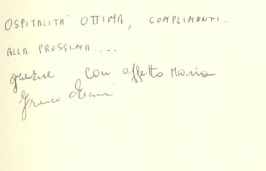 OSPITALITÀ OTTIMA, COMPLIMENTI.
ALLA PROSSIMA....
con affetto Maria
Franco